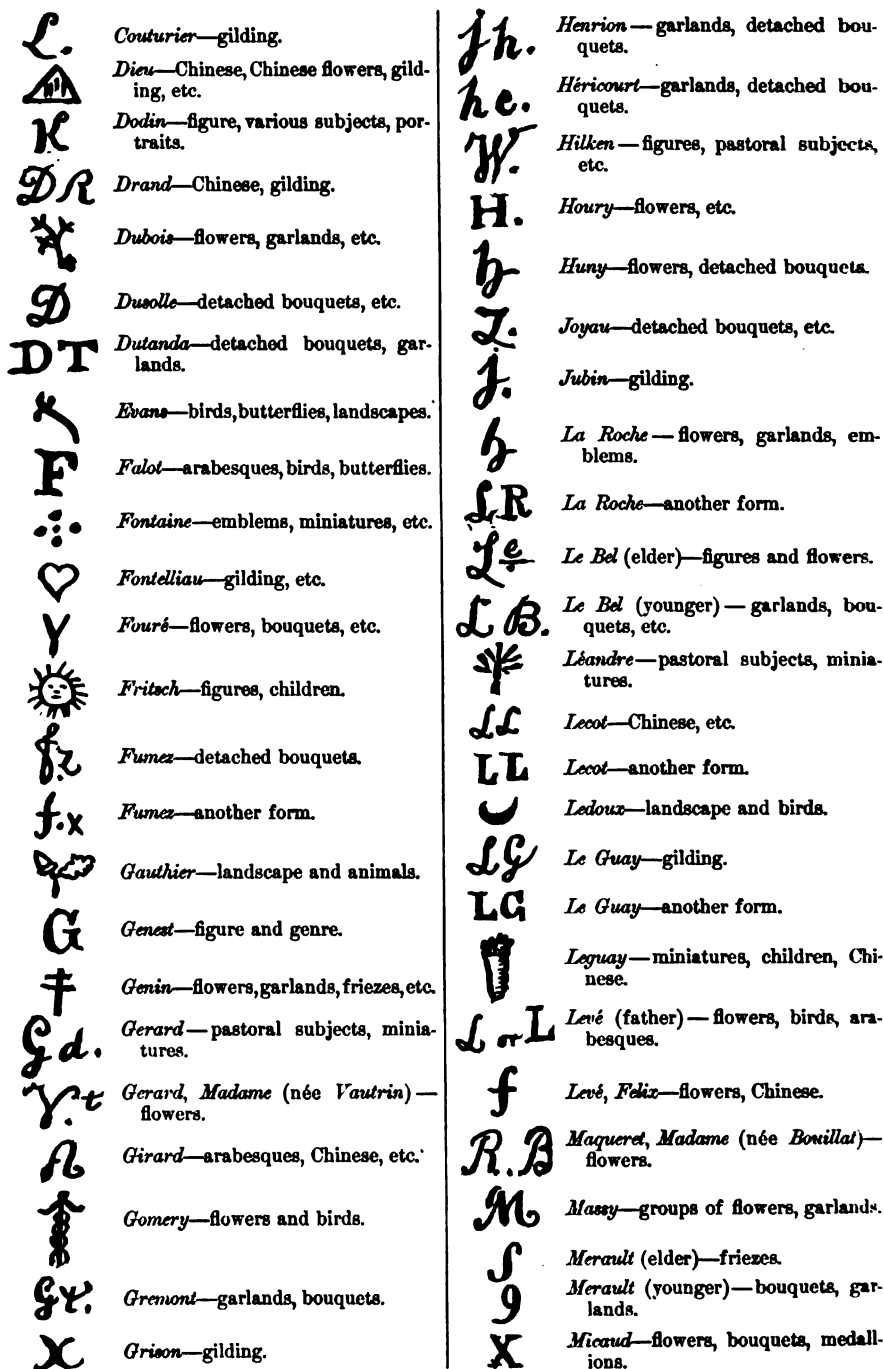 L. Couturier—gilding.
Dieu—Chinese, Chinese flowers, gild-
ing, etc.
K Dodin—figure, various subjects, por-
traits.
DR Drand—Chinese, gilding.
Dubois—flowers, garlands, etc.
D Dusolle—detached bouquets, etc.
DT Dutanda—detached bouquets, gar-
lands.
Evans—birds, butterflies, landscapes.
F Falot—arabesques, birds, butterflies.
Fontaine—emblems, miniatures, etc.
Fontelliau—gilding, etc.
Y Fouré—flowers, bouquets, etc.
Fritsch—figures, children.
fz Fumez—detached bouquets.
f.x Fumez—another form.
Gauthier—landscape and animals.
G Genest—figure and genre.
Genin—flowers, garlands, friezes, etc.
Gd. Gerard—pastoral subjects, minia-
tures.
V.t Gerard, Madame (née Vautrin)—
flowers.
Girard—arabesques, Chinese, etc.
Gomery—flowers and birds.
Gt. Gremont—garlands, bouquets.
X Grison—gilding.
jh. Henrion—garlands, detached bou-
quets.
he. Héricourt—garlands, detached bou-
quets.
W. Hilken—figures, pastoral subjects,
etc.
H. Houry—flowers, etc.
h Huny—flowers, detached bouquets.
Z. Joyau—detached bouquets, etc.
j. Jubin—gilding.
h La Roche—flowers, garlands, em-
blems.
LR La Roche—another form.
Le Le Bel (elder)—figures and flowers.
LB. Le Bel (younger)—garlands, bou-
quets, etc.
Léandre—pastoral subjects, minia-
tures.
LL Lecot—Chinese, etc.
LL Lecot—another form.
Ledoux—landscape and birds.
LG Le Guay—gilding.
LG Le Guay—another form.
Leguay—miniatures, children, Chi-
nese.
L or L Levé (father)—flowers, birds, ara-
besques.
f Levé, Felix—flowers, Chinese.
R.B Maqueret, Madame (née Bouillat)—
flowers.
M Massy—groups of flowers, garlands.
S Merault (elder)—friezes.
9 Merault (younger)—bouquets, gar-
lands.
X Micaud—flowers, bouquets, medall-
ions.